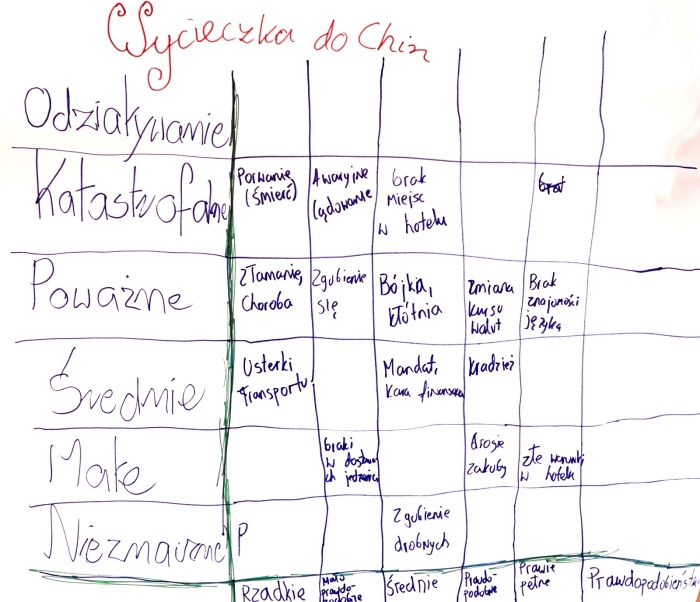 Wycieczka do Chin
Odziaływanie
Katastrofalne
Porwanie
(śmierć)
Awaryjne
lądowanie
brak
miejsc
w hotelu
Poważne
Złamanie,
choroba
Zgubienie
się
Bójka,
kłótnia
Zmiana
kursu
walut
Brak
znajomości
języka
Średnie
Usterki
transportu
Mandat,
kara finansowa
kradzież
Małe
braki
w dostaw
ch jedzenia
drogie
zakupy
złe warunki
w hotelu
Nieznaczne
P
Zgubienie
drobnych
Rzadkie
Mało
prawdo-
podobne
Średnie
Prawdo-
podobne
Prawie
pełne
Prawdopodobieństwo